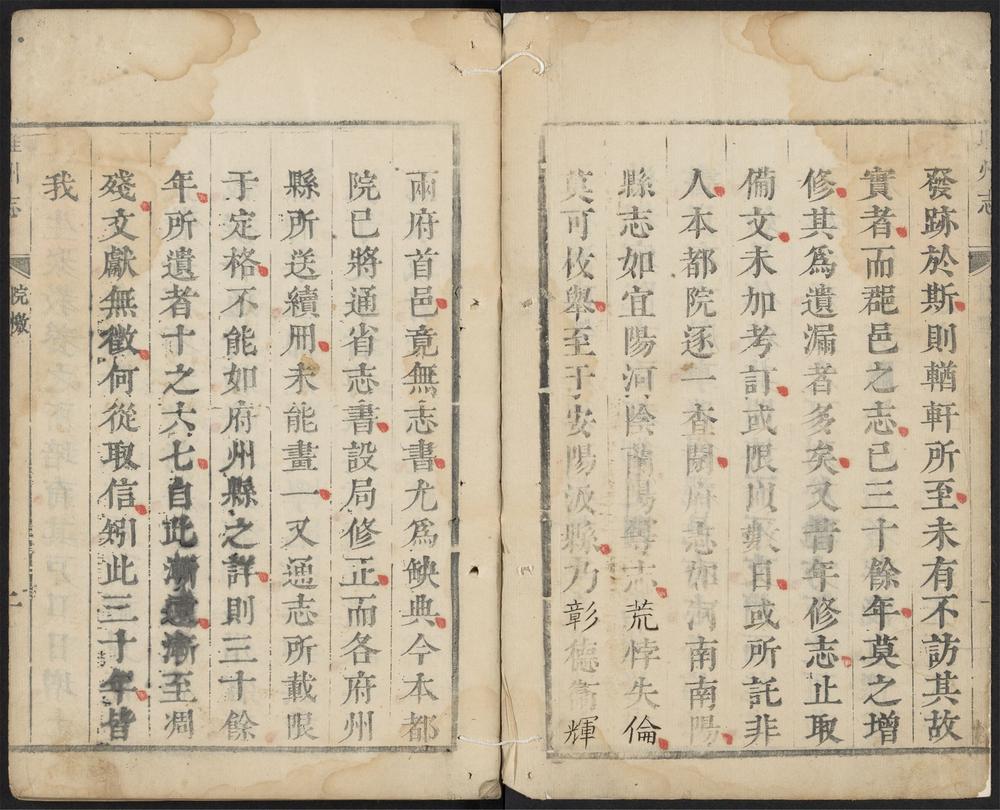 發跡於斯則輶軒所至未有不訪其故
實者而郡邑之志已三十餘年莫之增
修其為遺漏者多矣又昔年修志止取
備文未加考訂或限頁數日或所託非
人本都院逐一查閱府志如河南南陽
縣志如宜陽河陰蘭陽等志荒悖失倫
莫可枚舉至于安陽汲縣乃彰德衛輝
兩府首邑竟無志書尤為缺典今本都
院已將通省志書設局修正而各府州
縣所送續冊未能畫一又通志所載限
于定格不能如府州縣之詳則三十餘
年所遺者十之六七自此漸遠漸至凋
殘文獻無徵何從取信矧此三十年皆
我
州志
院檄